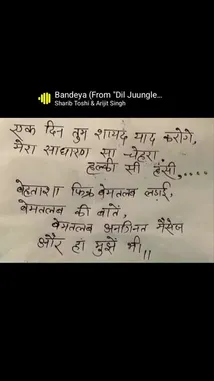 Bandeya (From "Dil Juungle...
Sharib Toshi & Arijit Singh
एक दिन तुम शायद याद करोगे,
मेरा साधारण सा चेहरा
हल्की सी हंसी,....
बेहताशा फिक्र बेमतलब लड़ाई,
बेमतलब की बातें,
बेमतलब अनगिनत मैसेज
और हा मुझें भी,,